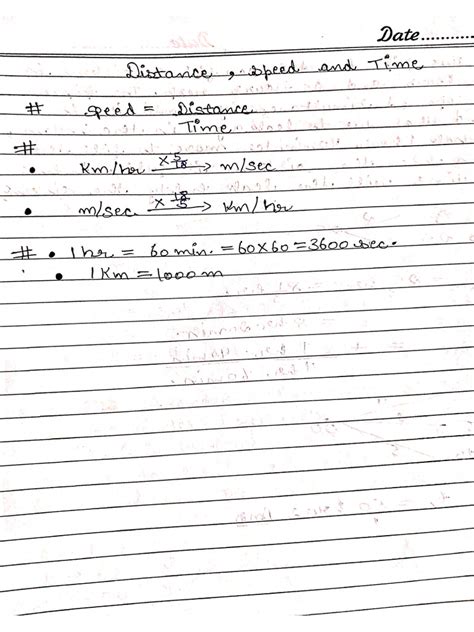 Date............
Distance, speed and Time
# speed = Distance
Time
#
• Km/hr ×5/18 → m/sec
• m/sec ×18/5 → Km/hr
# • 1 hr = 60 min. = 60×60 = 3600 sec.
• 1 Km = 1000 m